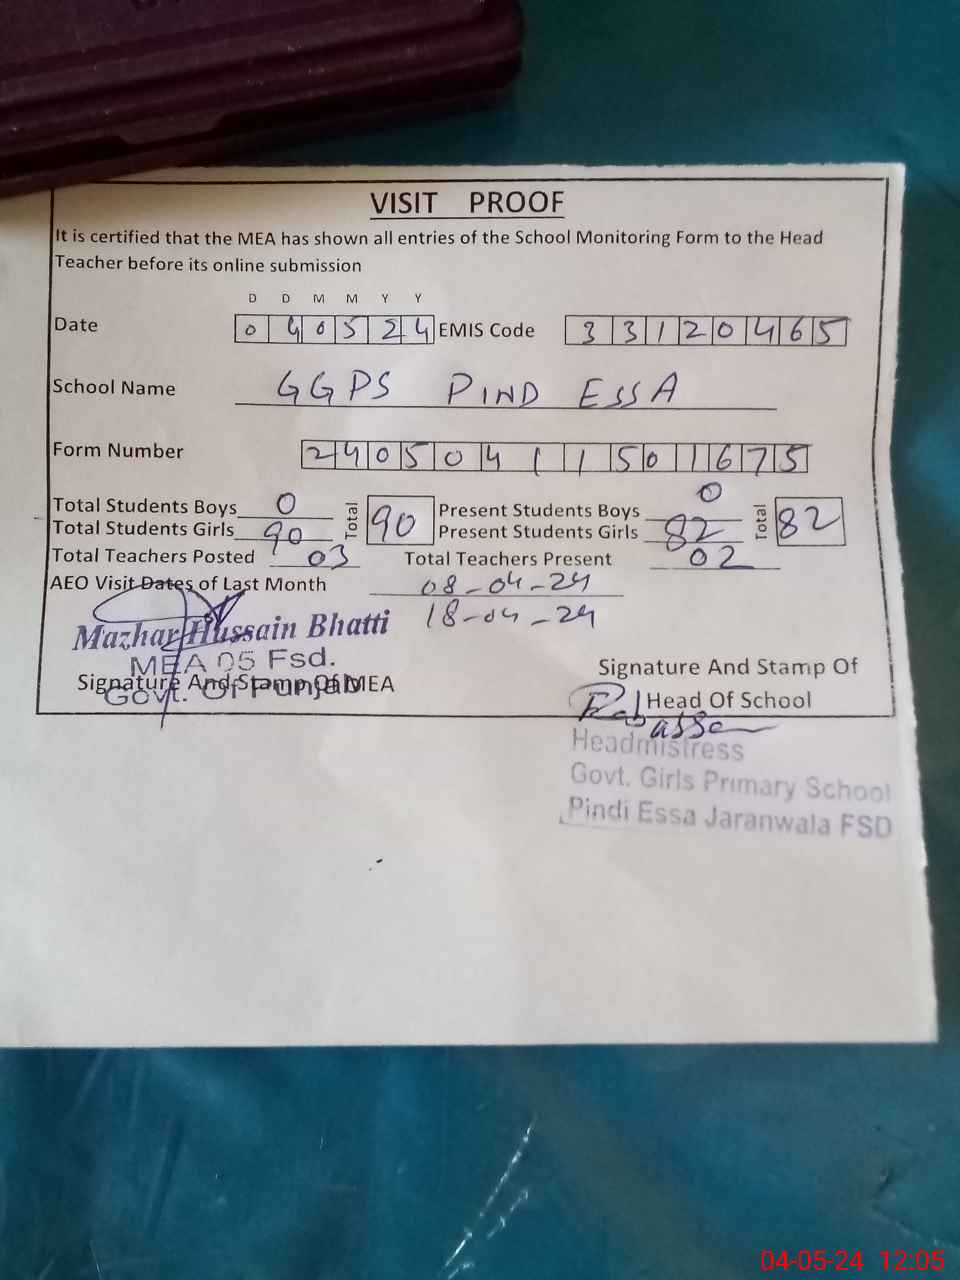 VISIT PROOF
It is certified that the MEA has shown all entries of the School Monitoring Form to the Head
Teacher before its online submission
D D M M Y Y
Date 0 4 0 5 2 4 EMIS Code 3 3 1 2 0 4 6 5
School Name GGPS PIND ESSA
Form Number 2 4 0 5 0 4 1 1 5 0 1 6 7 5
Total Students Boys 0 Total 90 Present Students Boys 0 Total 82
Total Students Girls 90 Present Students Girls 82
Total Teachers Posted 03 Total Teachers Present 02
AEO Visit Dates of Last Month 08-04-24
18-04-24
Mazhar Hussain Bhatti
MEA 05 Fsd.
Govt. Of Punjab
Signature And Stamp Of MEA
Signature And Stamp Of
Head Of School
Headmistress
Govt. Girls Primary School
Pindi Essa Jaranwala FSD
04-05-24 12:05